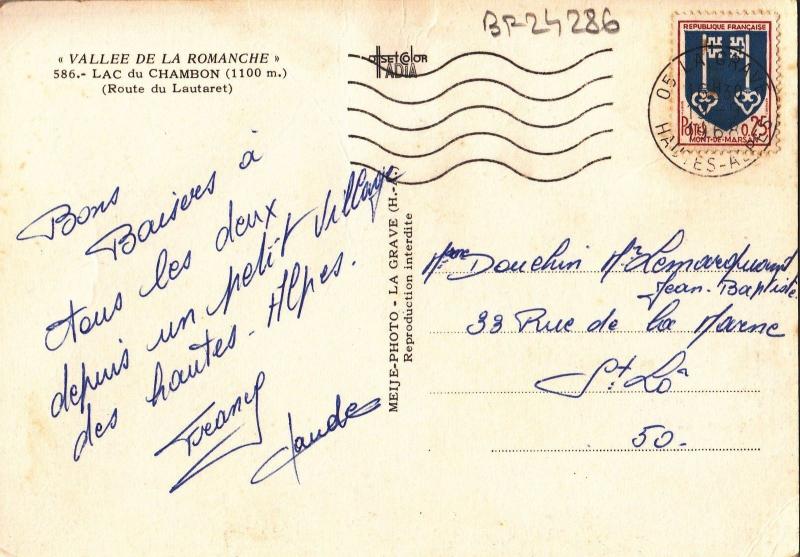 BR24286
« VALLEE DE LA ROMANCHE »
586.- LAC du CHAMBON (1100 m.)
(Route du Lautaret)
OFFSETCOLOR
IADIA
REPUBLIQUE FRANÇAISE
POSTES 0,25
MONT-DE-MARSAN
05 LA GRAVE
1968
HAUTES-ALPES
Bons
Baisers à
tous les deux
depuis un petit village
des hautes-Alpes.
Francy
Claude
MEIJE-PHOTO - LA GRAVE (H.-A.)
Reproduction interdite
Mme Douchin Mr Lemarquant
Jean-Baptiste
33 Rue de la Marne
St. Lô
50.